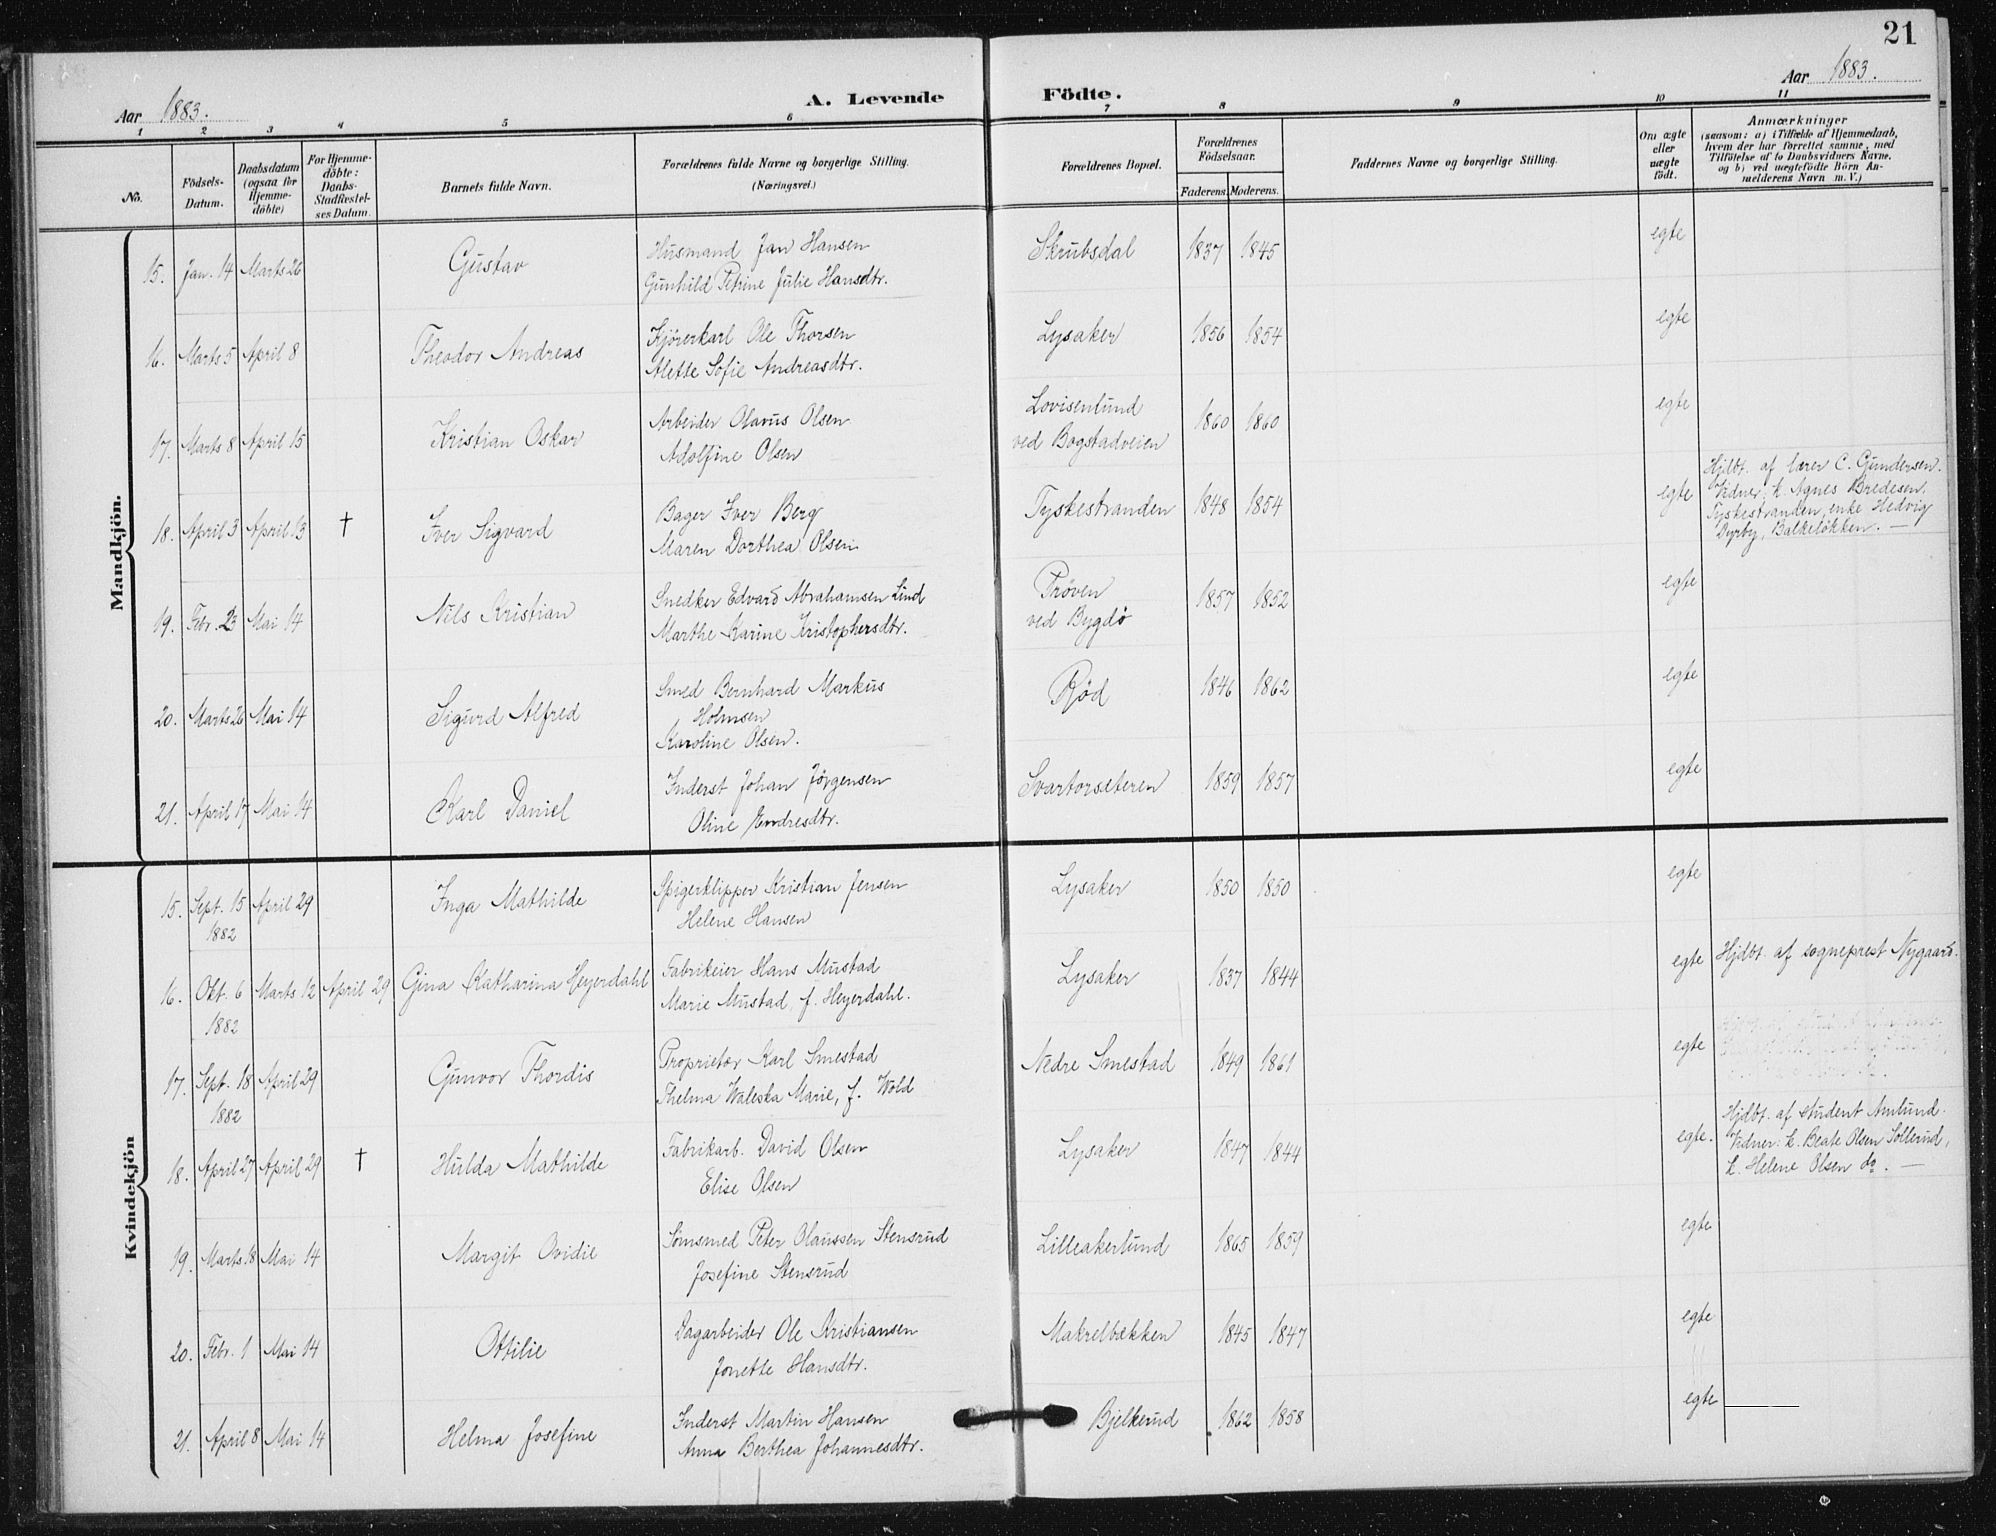 21
Aar 1883.
A. Levende Födte.
Aar 1883.
1 2 3 4 5 6 7 8 9 10 11
No.
Födsels-Datum.
Daabsdatum (ogsaa for Hjemme-döbte)
For Hjemme-döbte: Daabs-Stadfæstel-ses Datum.
Barnets fulde Navn.
Forældrenes fulde Navne og borgerlige Stilling.
(Næringsvei.)
Forældrenes Bopæl.
Forældrenes Födselsaar.
Faderens. Moderens.
Faddernes Navne og borgerlige Stilling.
Om ægte eller uægte födt.
Anmærkninger
(saasom: a) i Tilfælde af Hjemmedaab,
hvem der har forrettet samme, med
Tilföielse af to Daabsvidners Navne.
og b) ved uægtefödte Börn An-
melderens Navn m. V.)
Mandkjön.
15. Jan. 14 Marts 26 Gustav Husmand Jan Hansen Skrubsdal 1837 1845 egte
Gunhild Petrine Julie Hansdtr.
16. Marts 5 April 8 Theodor Andreas Kjørerkarl Ole Thorsen Lysaker 1856 1854 egte
Alette Sofie Andreasdtr.
17. Marts 8 April 15 Kristian Oskar Arbeider Olavus Olsen Lovisenlund 1860 1860 egte
Adolfine Olsen ved Bogstadveien
18. April 3 April 13 † Iver Sigvard Bager Iver Berg Tyskestranden 1848 1854 egte
Maren Dorthea Olsen
Hjdbt. af lærer C. Gundersen.
Vidner: k. Agnes Bredesen.
Tyskestranden, enke Hedvig
Dyrby, Balkeløkken. —
19. Febr. 23 Mai 14 Nils Kristian Snedker Edvard Abrahamsen Lind Prøven 1857 1852 egte
Marthe Karine Kristophersdtr. ved Bygdø
20. Marts 26 Mai 14 Sigurd Alfred Smed Bernhard Markus Rød 1846 1862 egte
Holmsen
Karoline Olsen.
21. April 17 Mai 14 Karl Daniel Inderst Johan Jørgensen Svartorsæteren 1859 1857 egte
Oline Endresdtr.
Kvindekjön
15. Sept. 15 April 29 Inga Mathilde Spigerklipper Kristian Jensen Lysaker 1850 1850 egte
1882 Helene Hansen
16. Okt. 6 Marts 12 April 29 Gina Katharina Heyerdahl Fabrikeier Hans Mustad Lysaker 1837 1844 egte Hjdbt. af sogneprest Nygaard.
1882 Marie Mustad, f. Heyerdahl.
17. Sept. 18 April 29 Gunvor Thordis Proprietær Karl Smestad Nedre Smestad 1849 1861 egte
1882 Thelma Waleska Marie, f. Wold
18. April 27 April 29 † Hulda Mathilde Fabrikarb. David Olsen Lysaker 1847 1844 egte.
Elise Olsen
Hjdbt. af student Amlund.
Vidner: k. Beate Olsen Sollerud,
k. Helene Olsen do. —
19. Marts 18 Mai 14 Margit Ovidie Sømsmed Peter Olaussen Stensrud Lilleakerlund 1865 1859 egte
Josefine Stensrud
20. Febr. 1 Mai 14 Ottilie Dagarbeider Ole Kristiansen Makrelbækken 1845 1847 egte
Jonette Hansdtr.
21. April 8 Mai 14 Helma Josefine Inderst Martin Hansen Bjelkerud 1862 1858 egte
Anna Berthea Johannesdtr.